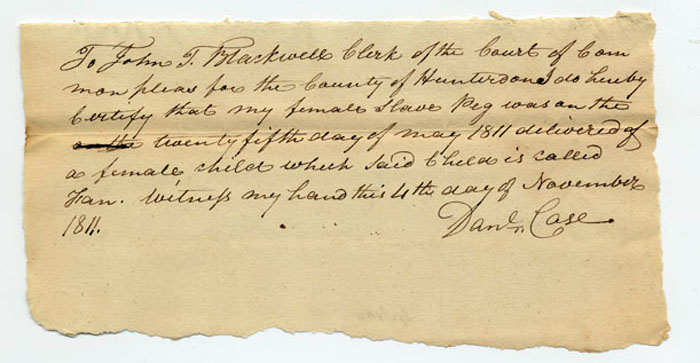 To John T. Blackwell Clerk of the Court of Com
mon pleas for the County of Hunterdon I do hereby
Certify that my female Slave Peg was on the
twenty fifth day of may 1811 delivered of
a female child which said Child is called
Fan. Witness my hand this 4th day of November
1811.
Danl. Case